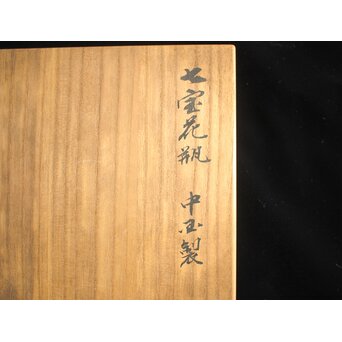 七宝花瓶 中玉製